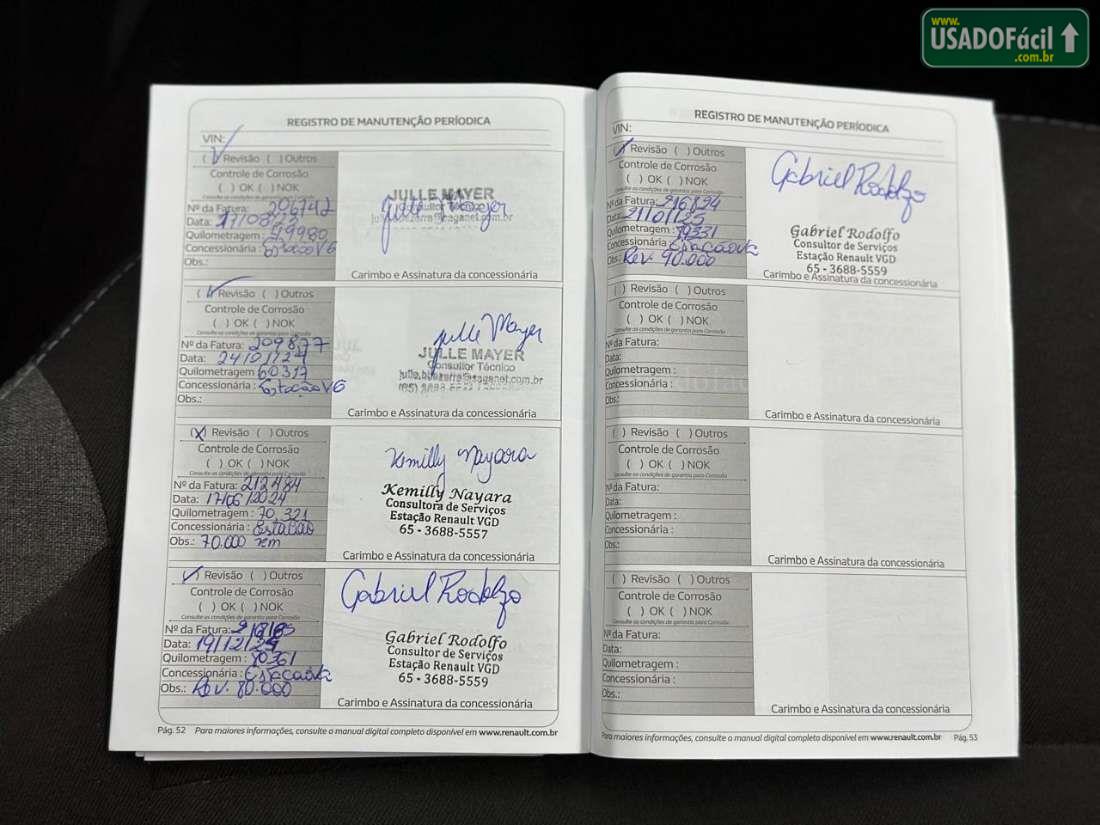 www.
USADOFácil
.com.br
REGISTRO DE MANUTENÇÃO PERÍODICA
VIN:
(✓) Revisão ( ) Outros
Controle de Corrosão
( ) OK ( ) NOK
Nº da Fatura: 204742
Data:
Quilometragem: 49980
Concessionária: Estação VG
Obs.:
JULLE MAYER
Carimbo e Assinatura da concessionária
(✓) Revisão ( ) Outros
Controle de Corrosão
( ) OK ( ) NOK
Consulte as condições de garantia para Corrosão
Nº da Fatura: 209877
Data: 24/01/24
Quilometragem: 60317
Concessionária: Estação VG
Obs.:
Julle Mayer
JULLE MAYER
Consultor Técnico
Carimbo e Assinatura da concessionária
(X) Revisão ( ) Outros
Controle de Corrosão
( ) OK ( ) NOK
Consulte as condições de garantia para Corrosão
Nº da Fatura: 212484
Data: 17/06/2024
Quilometragem: 70.321
Concessionária: Estação
Obs.: 70.000
Kemilly Nayara
Kemilly Nayara
Consultora de Serviços
Estação Renault VGD
65 - 3688-5557
Carimbo e Assinatura da concessionária
(✓) Revisão ( ) Outros
Controle de Corrosão
( ) OK ( ) NOK
Consulte as condições de garantia para Corrosão
Nº da Fatura:
Data: 19/12/24
Quilometragem: 80361
Concessionária:
Obs.: Rev. 80.000
Gabriel Rodolfo
Gabriel Rodolfo
Consultor de Serviços
Estação Renault VGD
65 - 3688-5559
Carimbo e Assinatura da concessionária
Pág. 52 Para maiores informações, consulte o manual digital completo disponível em www.renault.com.br
REGISTRO DE MANUTENÇÃO PERÍODICA
VIN:
(✓) Revisão ( ) Outros
Controle de Corrosão
( ) OK ( ) NOK
Consulte as condições de garantia para Corrosão
Nº da Fatura: 216824
Data:
Quilometragem:
Concessionária:
Obs.: Rev. 90.000
Gabriel Rodolfo
Gabriel Rodolfo
Consultor de Serviços
Estação Renault VGD
65 - 3688-5559
Carimbo e Assinatura da concessionária
( ) Revisão ( ) Outros
Controle de Corrosão
( ) OK ( ) NOK
Consulte as condições de garantia para Corrosão
Nº da Fatura:
Data:
Quilometragem :
Concessionária :
Obs.:
Carimbo e Assinatura da concessionária
( ) Revisão ( ) Outros
Controle de Corrosão
( ) OK ( ) NOK
Consulte as condições de garantia para Corrosão
Nº da Fatura:
Data:
Quilometragem :
Concessionária :
Obs.:
Carimbo e Assinatura da concessionária
( ) Revisão ( ) Outros
Controle de Corrosão
( ) OK ( ) NOK
Consulte as condições de garantia para Corrosão
Nº da Fatura:
Data:
Quilometragem :
Concessionária :
Obs.:
Carimbo e Assinatura da concessionária
Para maiores informações, consulte o manual digital completo disponível em www.renault.com.br Pág. 53